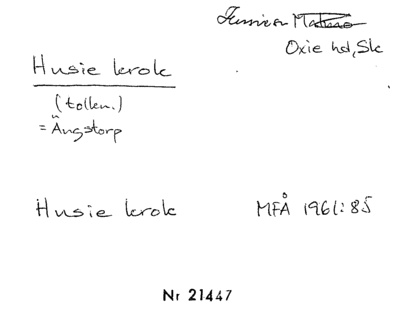 Oxie hd, Sk
Husie krok
(tollen.)
= Ängstorp
Husie krok MFÅ 1961:85
Nr 21447